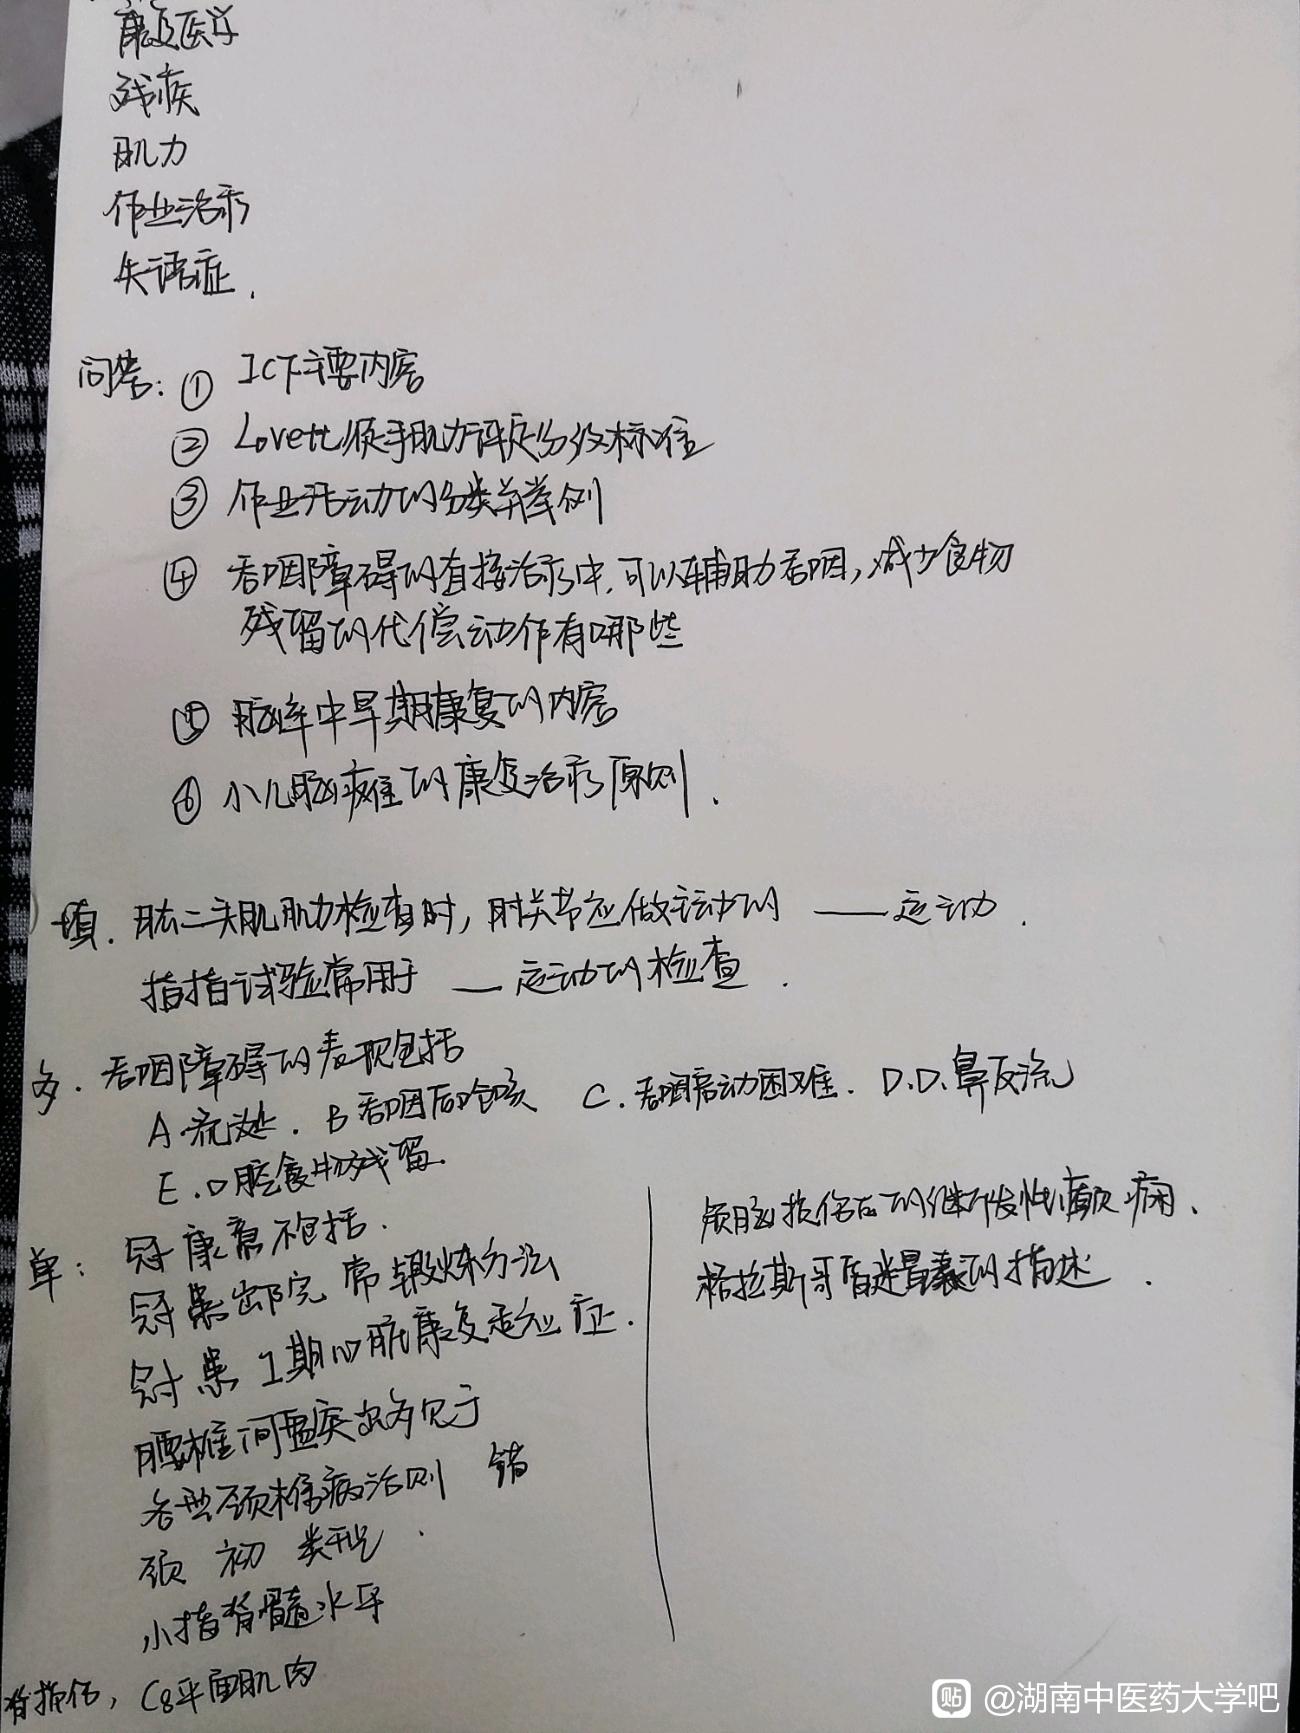 康复医学
残疾
肌力
作业治疗
失语症.
问答: ① ICF主要内容
② Lovett徒手肌力评定分级标准
③ 作业活动的分类并举例
④ 吞咽障碍的直接治疗中,可以辅助吞咽,减少食物
残留的代偿动作有哪些
⑤ 脑卒中早期康复的内容
⑥ 小儿脑瘫的康复治疗原则.
填. 肱二头肌肌力检查时, 肘关节应做运动的 —— 运动.
指指试验常用于 — 运动的检查.
多. 吞咽障碍的表现包括
A.流涎. B 吞咽后呛咳 C.吞咽启动困难. D.D.鼻反流
E.口腔食物残留.
单: 冠 康意不包括.
冠患出院 常锻炼方法
冠 患 I期心脏康复适应症.
腰椎间盘突出多见于
各型颈椎病治则 错
颈 初 类型.
小指脊髓水平
脊损伤, C8平面肌肉
颅脑损伤后的继发性癫痫.
格拉斯哥昏迷量表的描述.
@湖南中医药大学吧